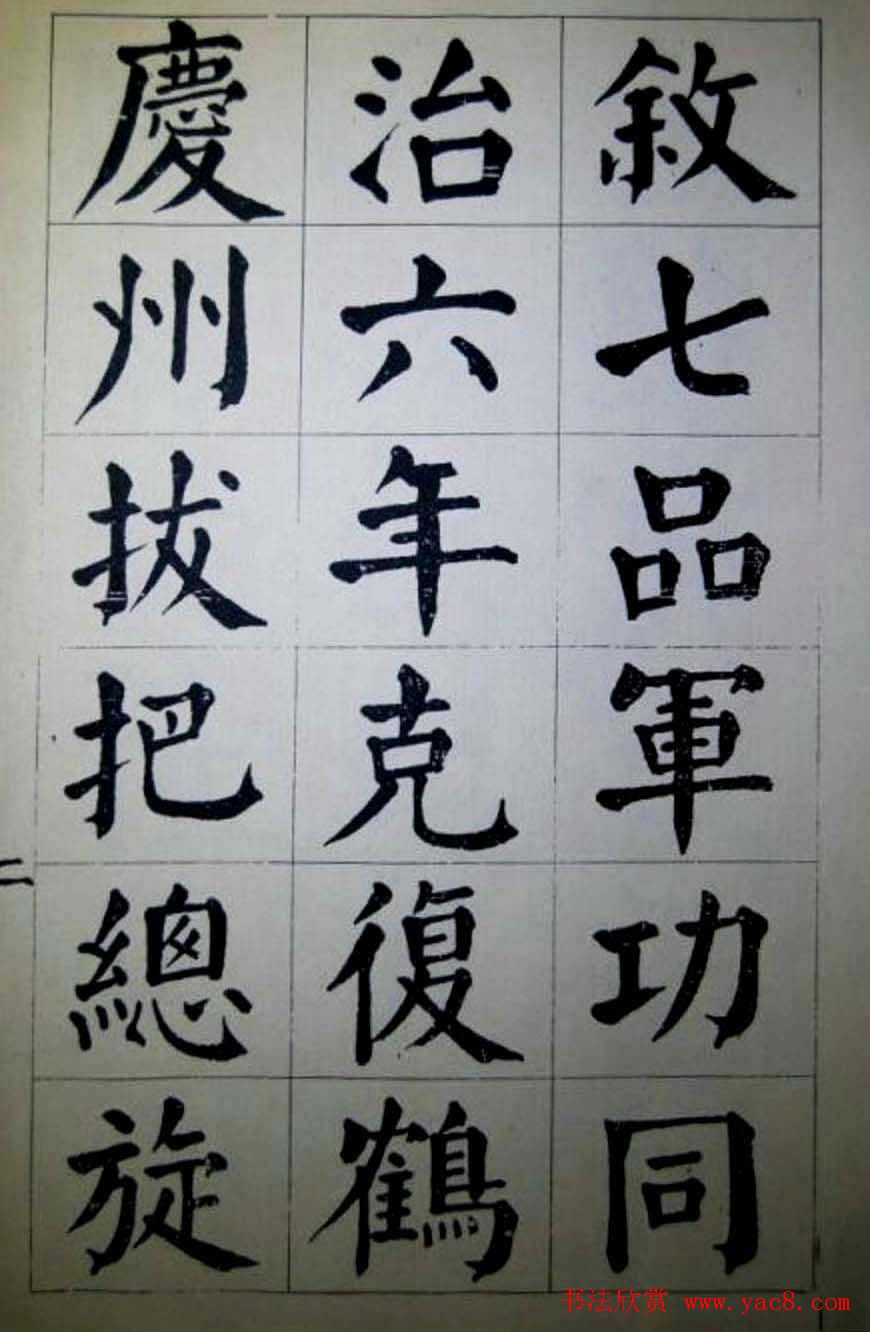 敘七品軍功同
治六年克復鶴
慶州拔把總旋
二
书法欣赏 www.yac8.com